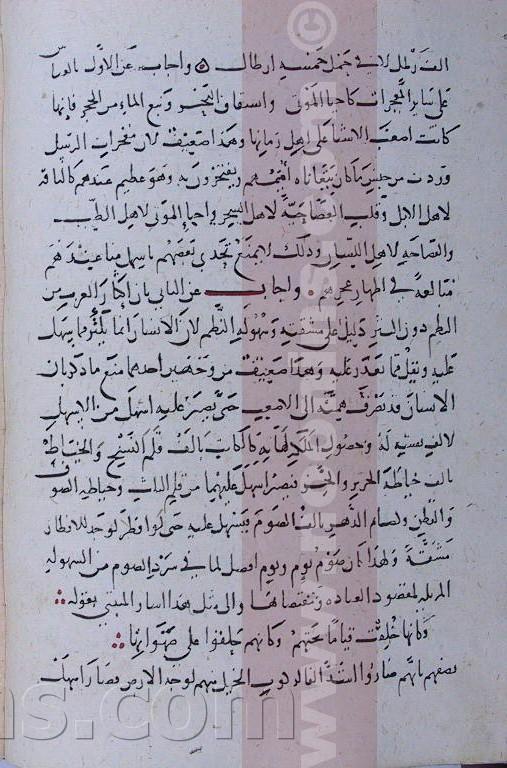 الف رطل لا في حمل خمسه ارطال واجاب عن الاول بالقياس
على ساير المعجزات كاحيا الموتى وانشقاق البحر ونبع الماء من الحجر فانها
كانت اصعب الاشيا على اهل زمانها وهذا ضعيف لان معجزات الرسل
وردت من جنس ما كان يتعاناه اممهم ويفتخرون به وهو عظيم عندهم كالناقه
لاهل الابل وقلب العصا حية لاهل السحر واحيا الموتى لاهل الطب
والفصاحه لاهل اللسان وذلك لا يمنع تحدى بعضهم باسهل مما عندهم
مبالغة في اظهار عجزهم واجاب عن الثاني بان اكثار العرب من
النظم دون النثر دليل على مشقته وسهوله النظم لان الانسان انما يكثر مما يسهل
عليه ويقل مما تعذر عليه وهذا ضعيف من وجهين احدهما منع ما ذكر بان
الانسان قد تصرف همته الى الاصعب حتى يصير عليه اسهل من الاسهل
لالف نفسه له وحصول الملكه لها به كالكاتب بالف قلم النسخ والخياط
بالف خياطة الحرير والخز فيصير اسهل عليهما من قلم الثلث وخياطه الصوف
والقطن ولصايم الدهر بالف الصوم فيسهل عليه حتى لو افطر لوجد للافطار
مشقة ولهذا كان صوم يوم ويوم افضل لما في سرد الصوم من السهوله
المزيله لمقصود العباده ومقتضاها والى مثل هذا اشار المتنبي بقوله
وكانها خلقت قياما تحتهم وكانهم خلقوا على صهواتها
يصفهم بانهم صاروا اشد الفا لركوب الخيل منهم لوجه الارض فصار اسهل